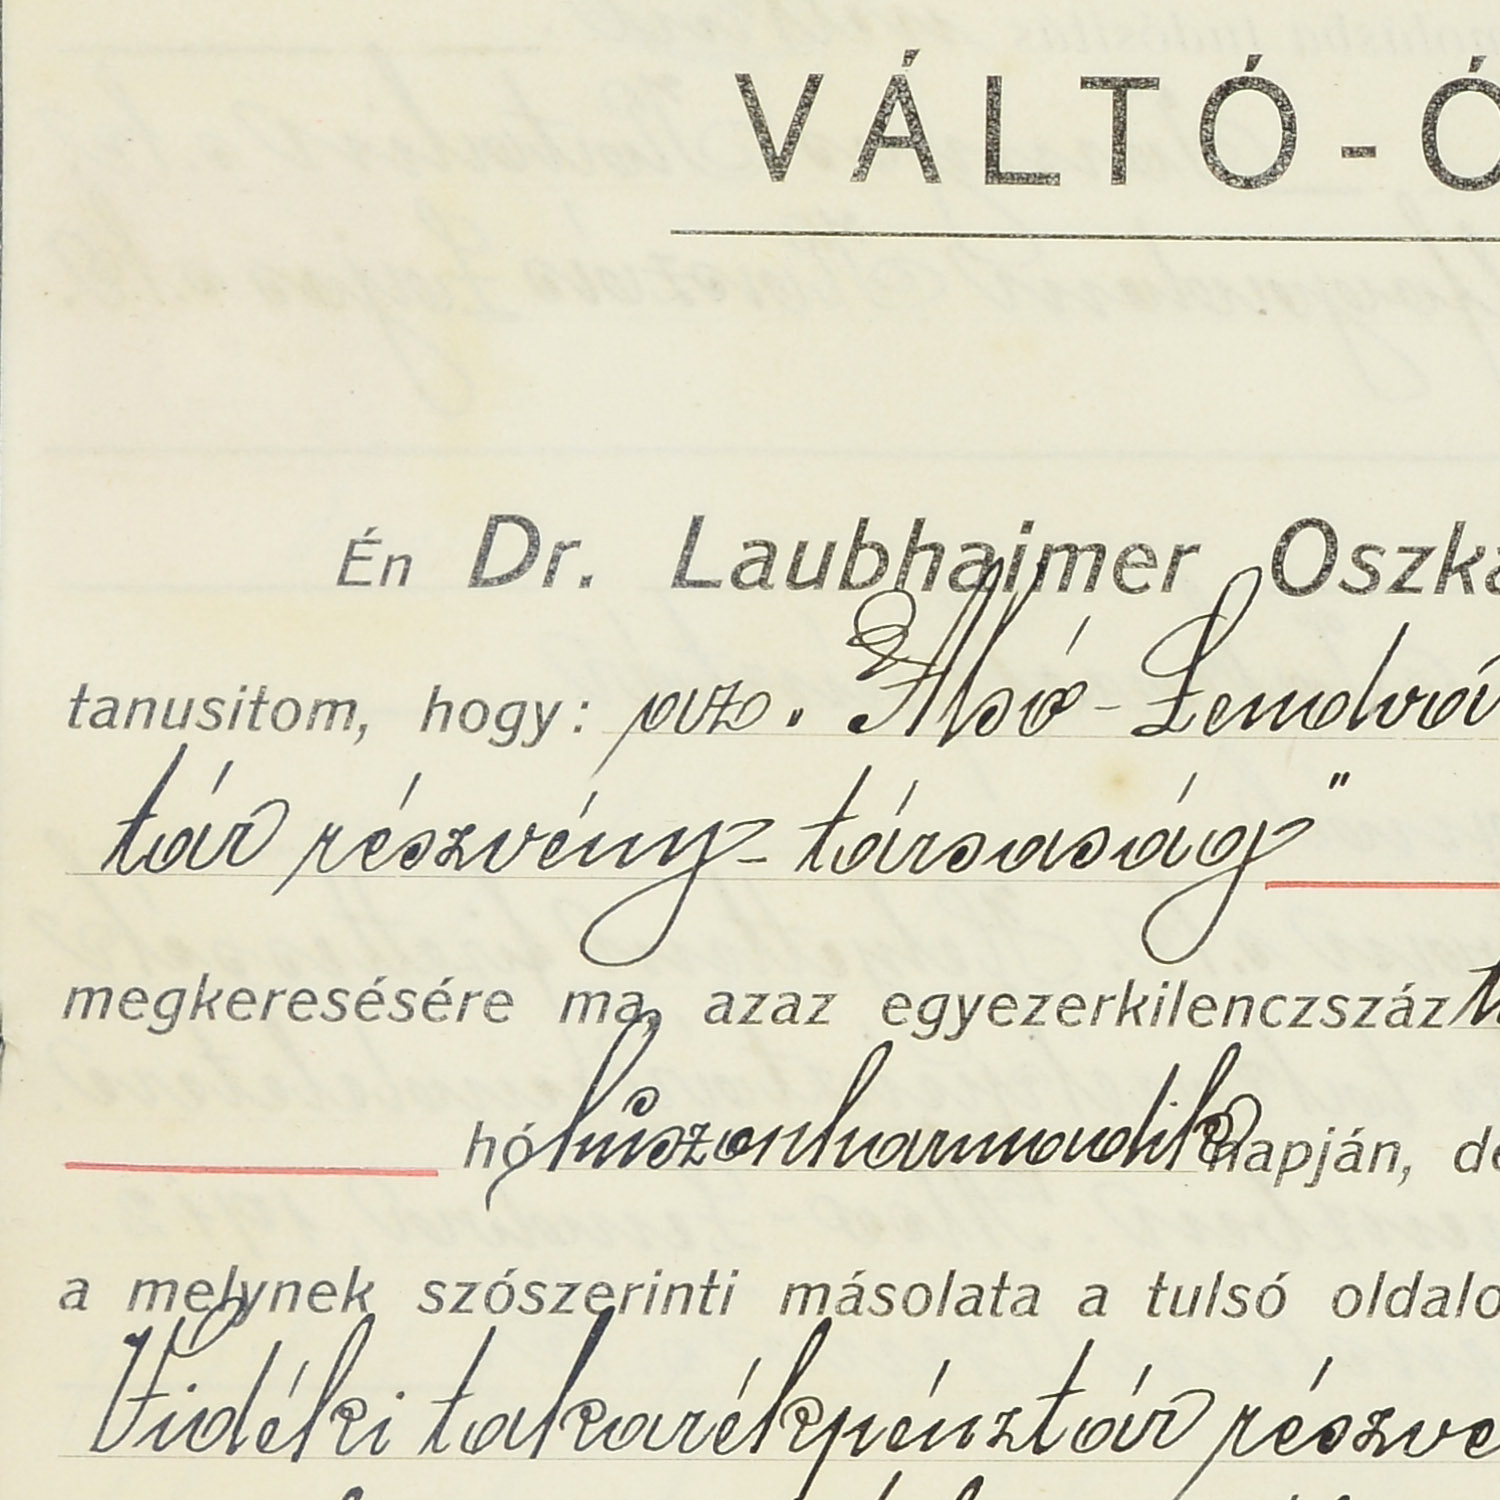 VÁLTÓ-Ó
Én Dr. Laubhaimer Oszká
tanusitom, hogy: az. Alsó-Lendvá
tár részvény-társaság"
megkeresésére ma, azaz egyezerkilenczszáz
hó huszonharmadik napján, de
a melynek szószerinti másolata a tulsó oldalo
Vidéki takarékpénztár részve